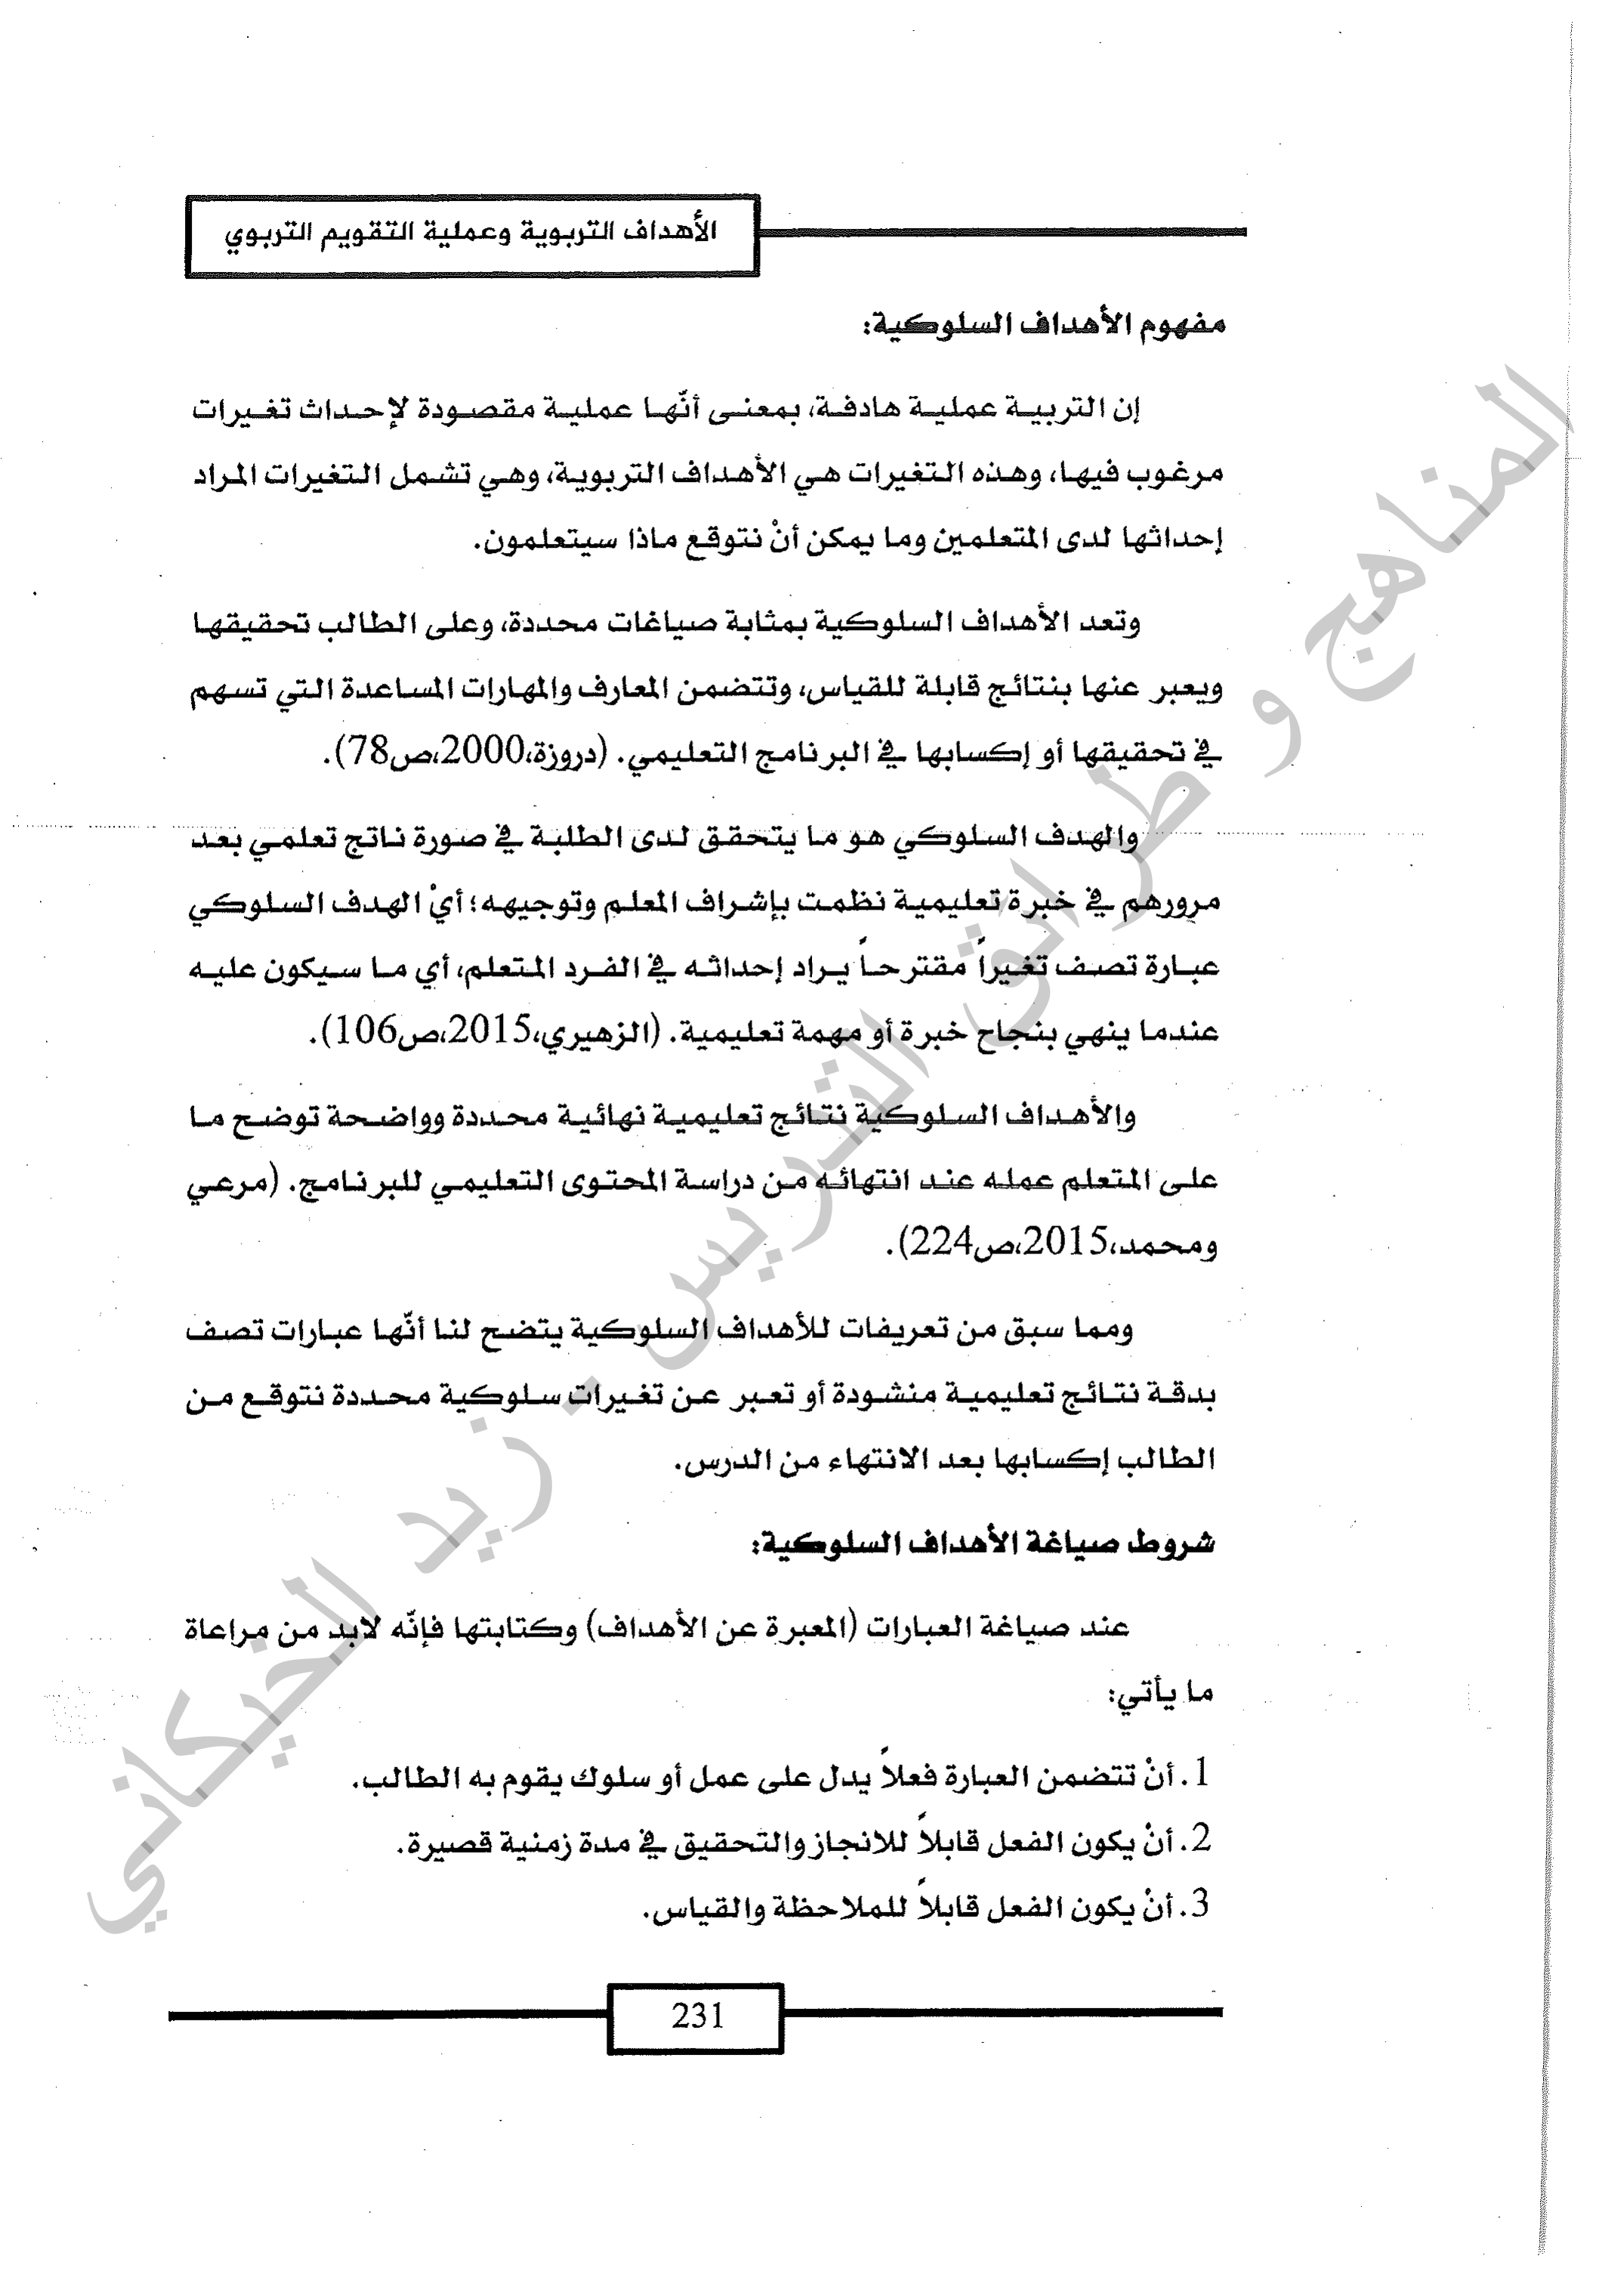 الأهداف التربوية وعملية التقويم التربوي
مفهوم الأهداف السلوكية:
إن التربية عملية هادفة، بمعنى أنّها عملية مقصودة لإحداث تغيرات
مرغوب فيها، وهذه التغيرات هي الأهداف التربوية، وهي تشمل التغيرات المراد
إحداثها لدى المتعلمين وما يمكن أنْ نتوقع ماذا سيتعلمون.
وتعد الأهداف السلوكية بمثابة صياغات محددة، وعلى الطالب تحقيقها
ويعبر عنها بنتائج قابلة للقياس، وتتضمن المعارف والمهارات المساعدة التي تسهم
في تحقيقها أو إكسابها في البرنامج التعليمي. (دروزة،2000،ص78).
والهدف السلوكي هو ما يتحقق لدى الطلبة في صورة ناتج تعلمي بعد
مرورهم في خبرة تعليمية نظمت بإشراف المعلم وتوجيهه؛ أيْ الهدف السلوكي
عبارة تصف تغيراً مقترحاً يراد إحداثه في الفرد المتعلم، أي ما سيكون عليه
عندما ينهي بنجاح خبرة أو مهمة تعليمية. (الزهيري،2015،ص106).
والأهداف السلوكية نتائج تعليمية نهائية محددة وواضحة توضح ما
على المتعلم عمله عند انتهائه من دراسة المحتوى التعليمي للبرنامج. (مرعي
ومحمد،2015،ص224).
ومما سبق من تعريفات للأهداف السلوكية يتضح لنا أنّها عبارات تصف
بدقة نتائج تعليمية منشودة أو تعبر عن تغيرات سلوكية محددة نتوقع من
الطالب إكسابها بعد الانتهاء من الدرس.
شروط صياغة الأهداف السلوكية:
عند صياغة العبارات (المعبرة عن الأهداف) وكتابتها فإنّه لابد من مراعاة
ما يأتي:
1. أنْ تتضمن العبارة فعلاً يدل على عمل أو سلوك يقوم به الطالب.
2. أنْ يكون الفعل قابلاً للانجاز والتحقيق في مدة زمنية قصيرة.
3. أنْ يكون الفعل قابلاً للملاحظة والقياس.
231
المناهج و طرائق التدريس - زيد الخيكاني